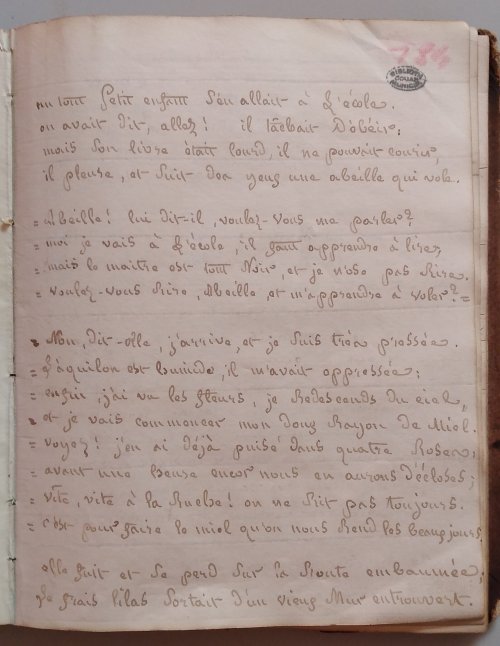 784
BIBLIOTH
DOUAI
MUNICIP
un tout petit enfant s'en allait à l'école.
on avait dit, allez! il tâchait d'obéir;
mais son livre était lourd, il ne pouvait courir,
il pleure, et suit des yeux une abeille qui vole.
= Abeille! lui dit-il, voulez-vous me parler?
= moi je vais à l'école, il faut apprendre à lire,
= mais le maitre est tout Noir, et je n'ose pas Rire.
= voulez-vous rire, Abeille, et m'apprendre à voler? =
= Non, dit-elle, j'arrive, et je suis très pressée.
= l'aquilon est humide, il m'avait oppressée;
= enfin j'ai vu les fleurs, je Redescends du ciel,
= et je vais commencer mon doux Rayon de Miel.
= voyez! j'en ai déjà puisé dans quatre Roses;
= avant une heure encor nous en aurons d'écloses;
= vîte, vite à la Ruche! on ne Rit pas toujours.
= c'est pour faire le miel qu'on nous Rend les beaux jours,
elle fuit et se perd sur la Route embaumée;
le frais lilas sortait d'un vieux Mur entrouvert.